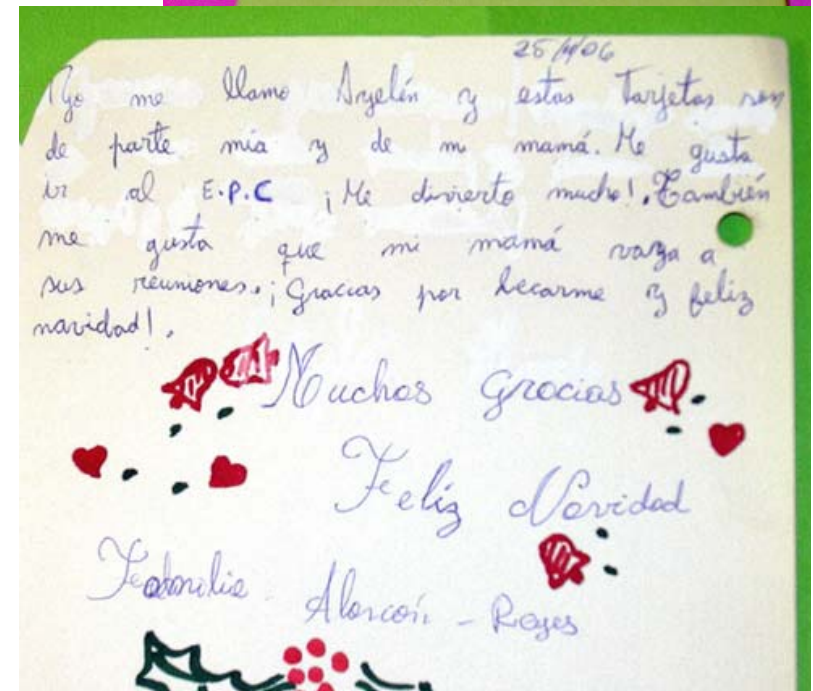 25/11/06
Yo me llamo Ayelén y estas Tarjetas son
de parte mía y de mi mamá. Me gusta
ir al E.P.C ¡Me divierto mucho!. También
me gusta que mi mamá vaya a
sus reuniones. ¡Gracias por becarme y feliz
navidad!.
Muchas Gracias
Feliz Navidad
Familia Alarcón - Reyes